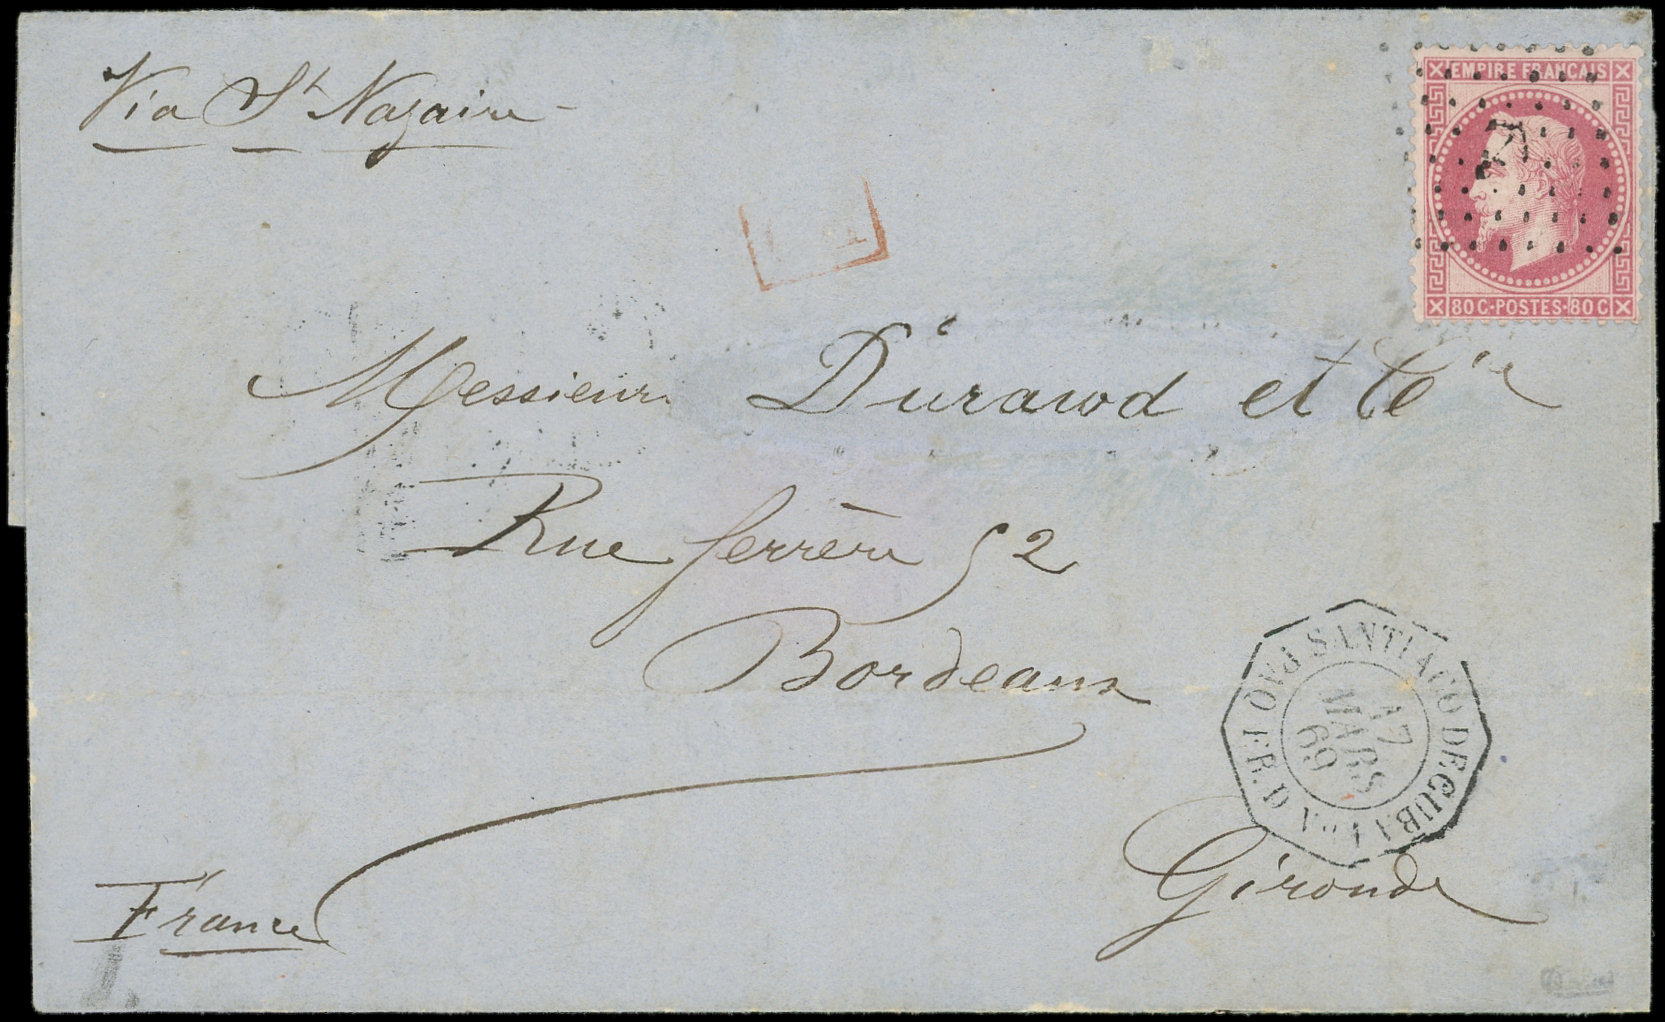 Via St Nazaire
EMPIRE FRANÇAIS
80 C·POSTES·80 C
Messieurs Durand et Cie
Rue ferrère 52
Bordeaux
SANTIAGO DE CUBA
PAQ. FR. D
17
MARS
69
Gironde
France